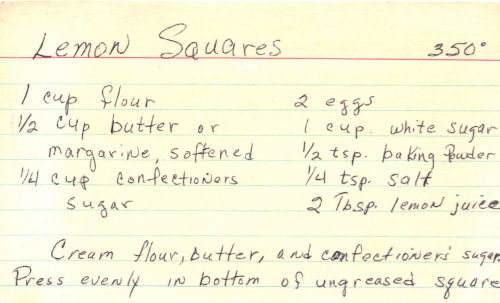 Lemon Squares 350°
1 cup flour
1/2 cup butter or
margarine, softened
1/4 cup confectioners
sugar
2 eggs
1 cup. white sugar
1/2 tsp. baking powder
1/4 tsp. salt
2 Tbsp. lemon juice
Cream flour, butter, and confectioners' sugar.
Press evenly in bottom of ungreased square